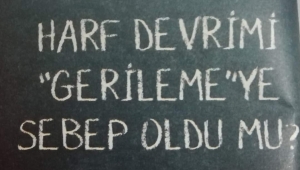 HARF DEVRİMİ
"GERİLEME"YE
SEBEP OLDU MU?